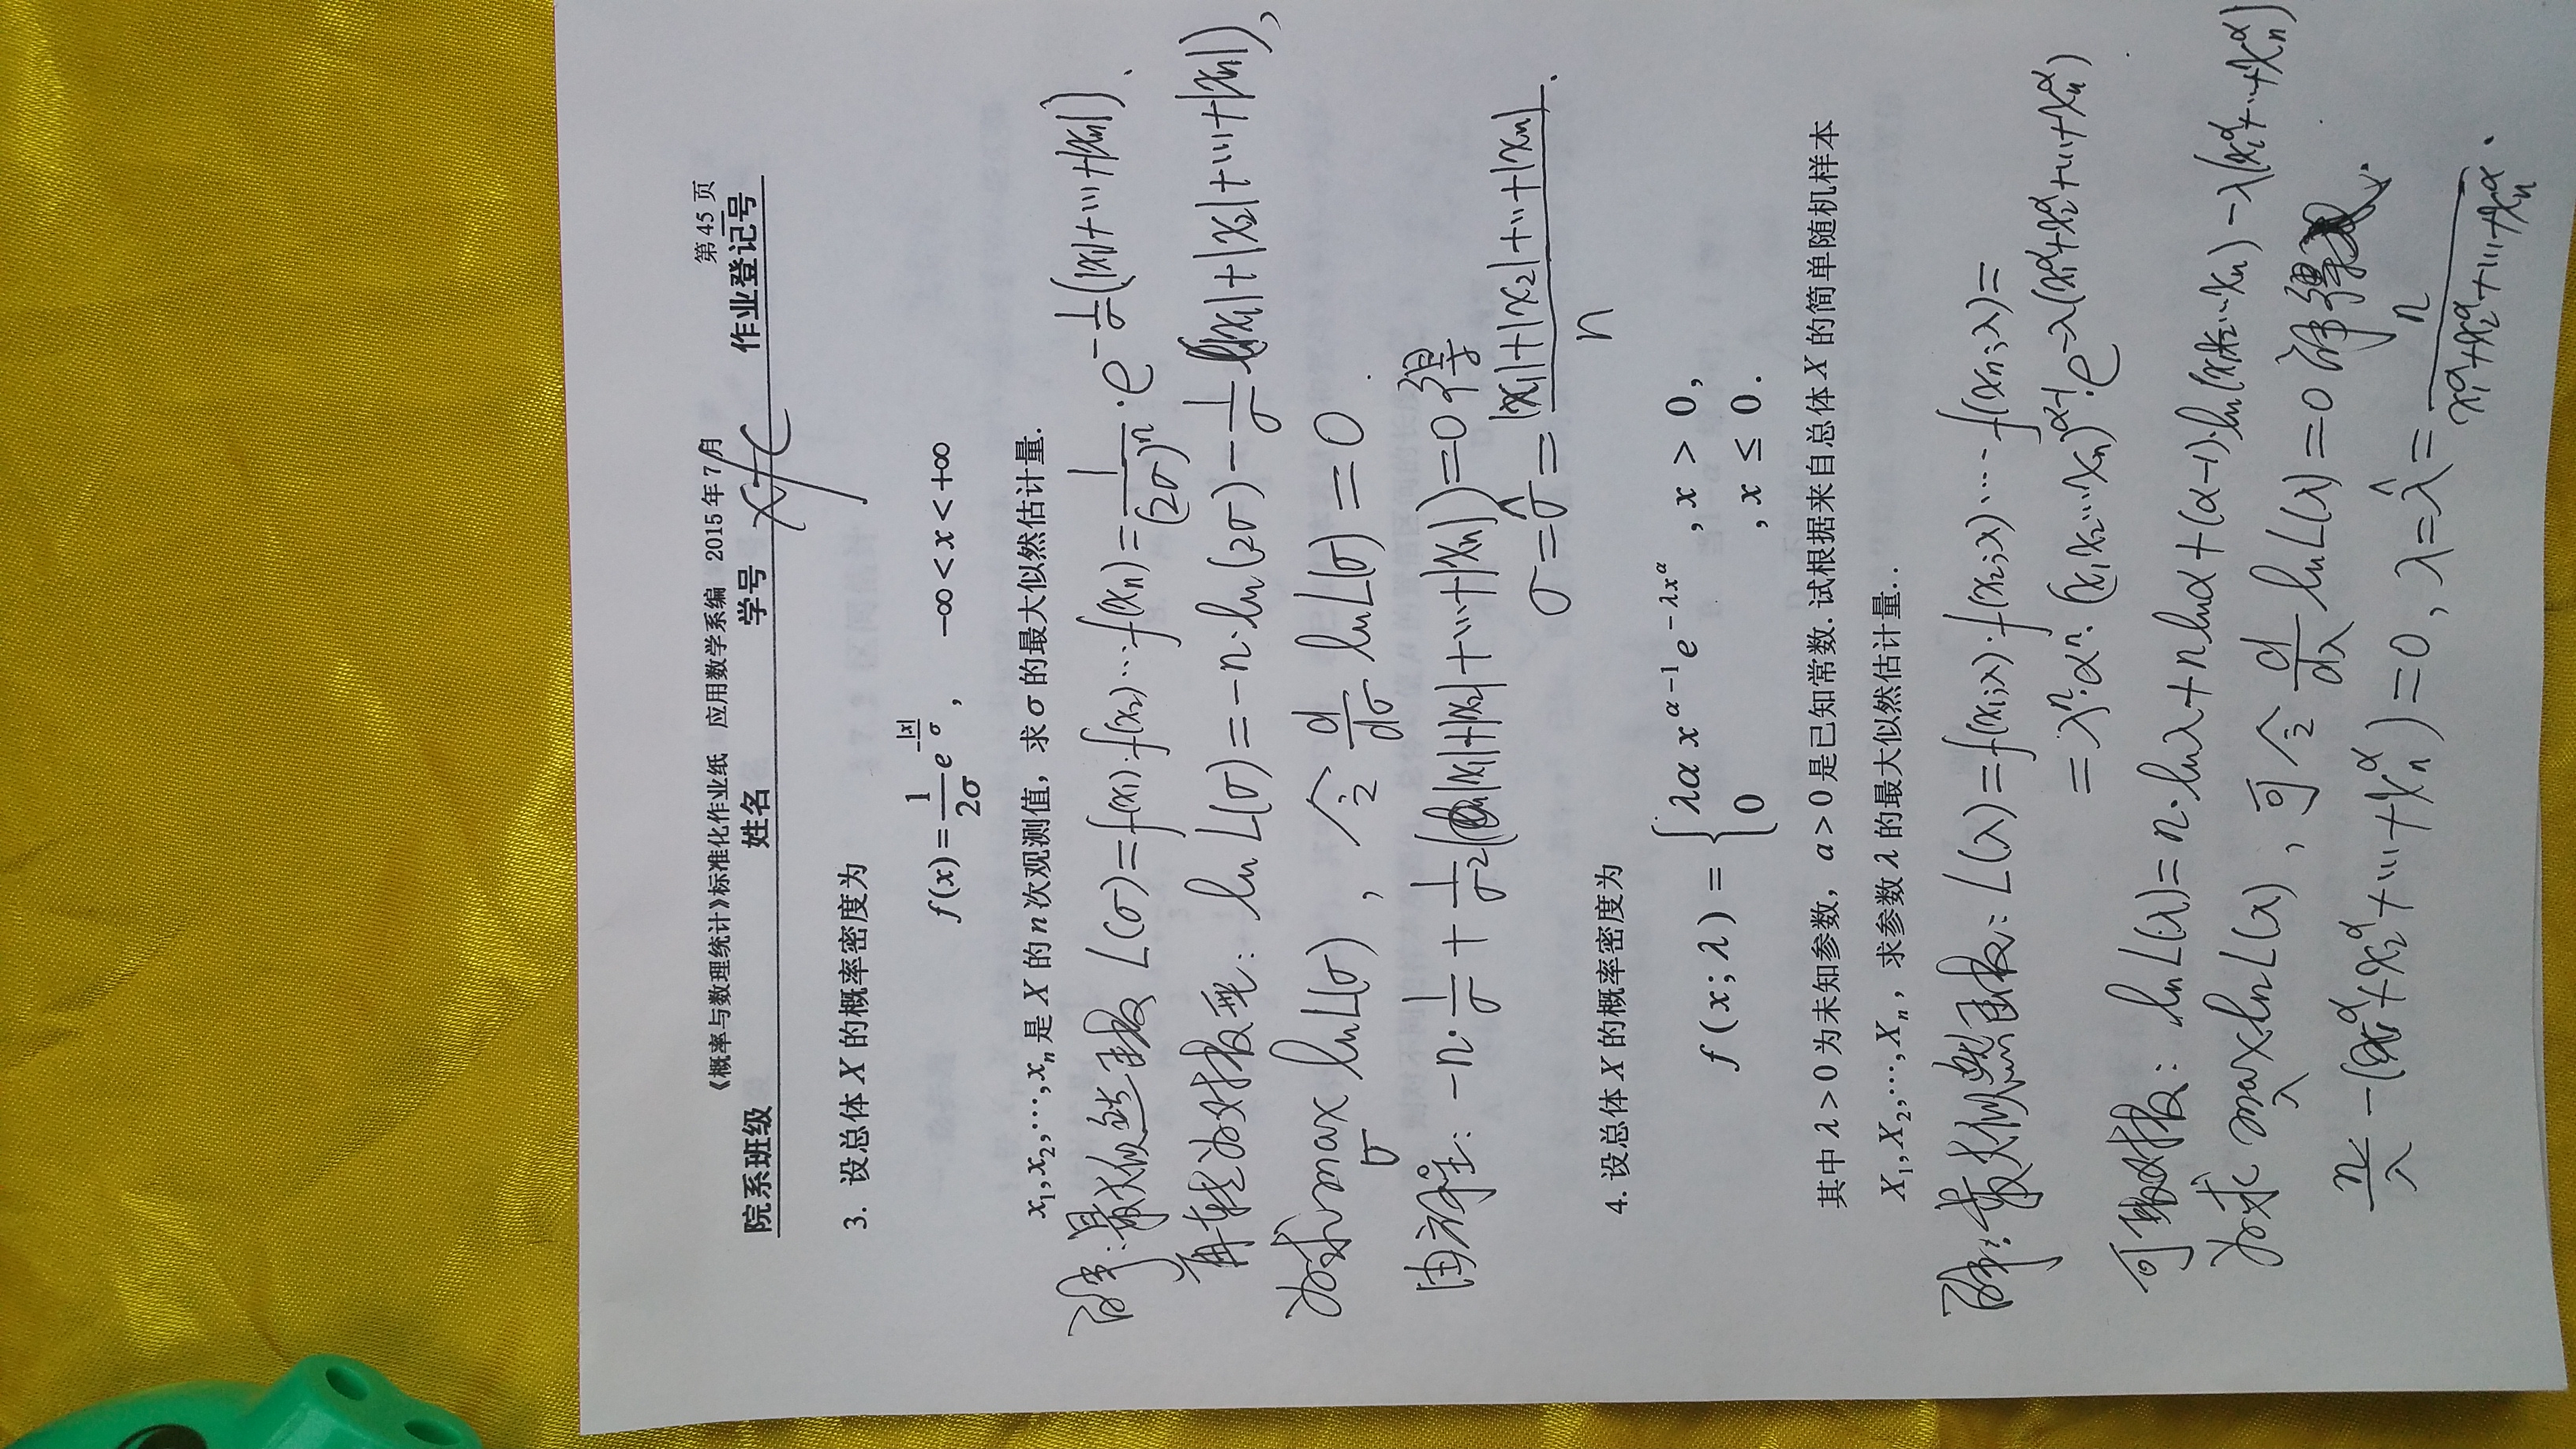 《概率与数理统计》标准化作业纸 应用数学系编 2015年7月 第45页
院系班级 姓名 学号 作业登记号
3. 设总体 X 的概率密度为
f(x) = \frac{1}{2σ} e^{-\frac{|x|}{σ}}, -∞ < x < +∞
x₁, x₂, ⋯, xₙ 是 X 的 n 次观测值, 求 σ 的最大似然估计量.
解: 最大似然函数 L(σ) = f(x₁)·f(x₂)⋯f(xₙ) = \frac{1}{(2σ)ⁿ}·e^{-\frac{1}{σ}(|x₁|+⋯+|xₙ|)}.
再转为对数型: ln L(σ) = -n·ln(2σ) - \frac{1}{σ}(|x₁|+|x₂|+⋯+|xₙ|),
为求 max_σ ln L(σ), 令 \frac{d}{dσ} ln L(σ) = 0.
-n·\frac{1}{σ} + \frac{1}{σ²}(|x₁|+|x₂|+⋯+|xₙ|) = 0 得
σ = \hat{σ} = \frac{|x₁|+|x₂|+⋯+|xₙ|}{n}.
4. 设总体 X 的概率密度为
f(x; λ) = { λα x^{α-1} e^{-λx^α}, x > 0,
0, x ≤ 0.
其中 λ > 0 为未知参数, α > 0 是已知常数. 试根据来自总体 X 的简单随机样本
X₁, X₂, ⋯, Xₙ, 求参数 λ 的最大似然估计量..
解: 最大似然函数: L(λ) = f(x₁;λ)·f(x₂;λ)⋯f(xₙ;λ) =
= λⁿ·αⁿ·(x₁x₂⋯xₙ)^{α-1}·e^{-λ(x₁^α+x₂^α+⋯+xₙ^α)}
可取对数: ln L(λ) = n·lnλ + n lnα + (α-1)·ln(x₁x₂⋯xₙ) - λ(x₁^α+⋯+xₙ^α)
为求 max_λ ln L(λ), 可令 \frac{d}{dλ} ln L(λ) = 0 解得
\frac{n}{λ} - (x₁^α+x₂^α+⋯+xₙ^α) = 0, λ = \hat{λ} = \frac{n}{x₁^α+x₂^α+⋯+xₙ^α}.